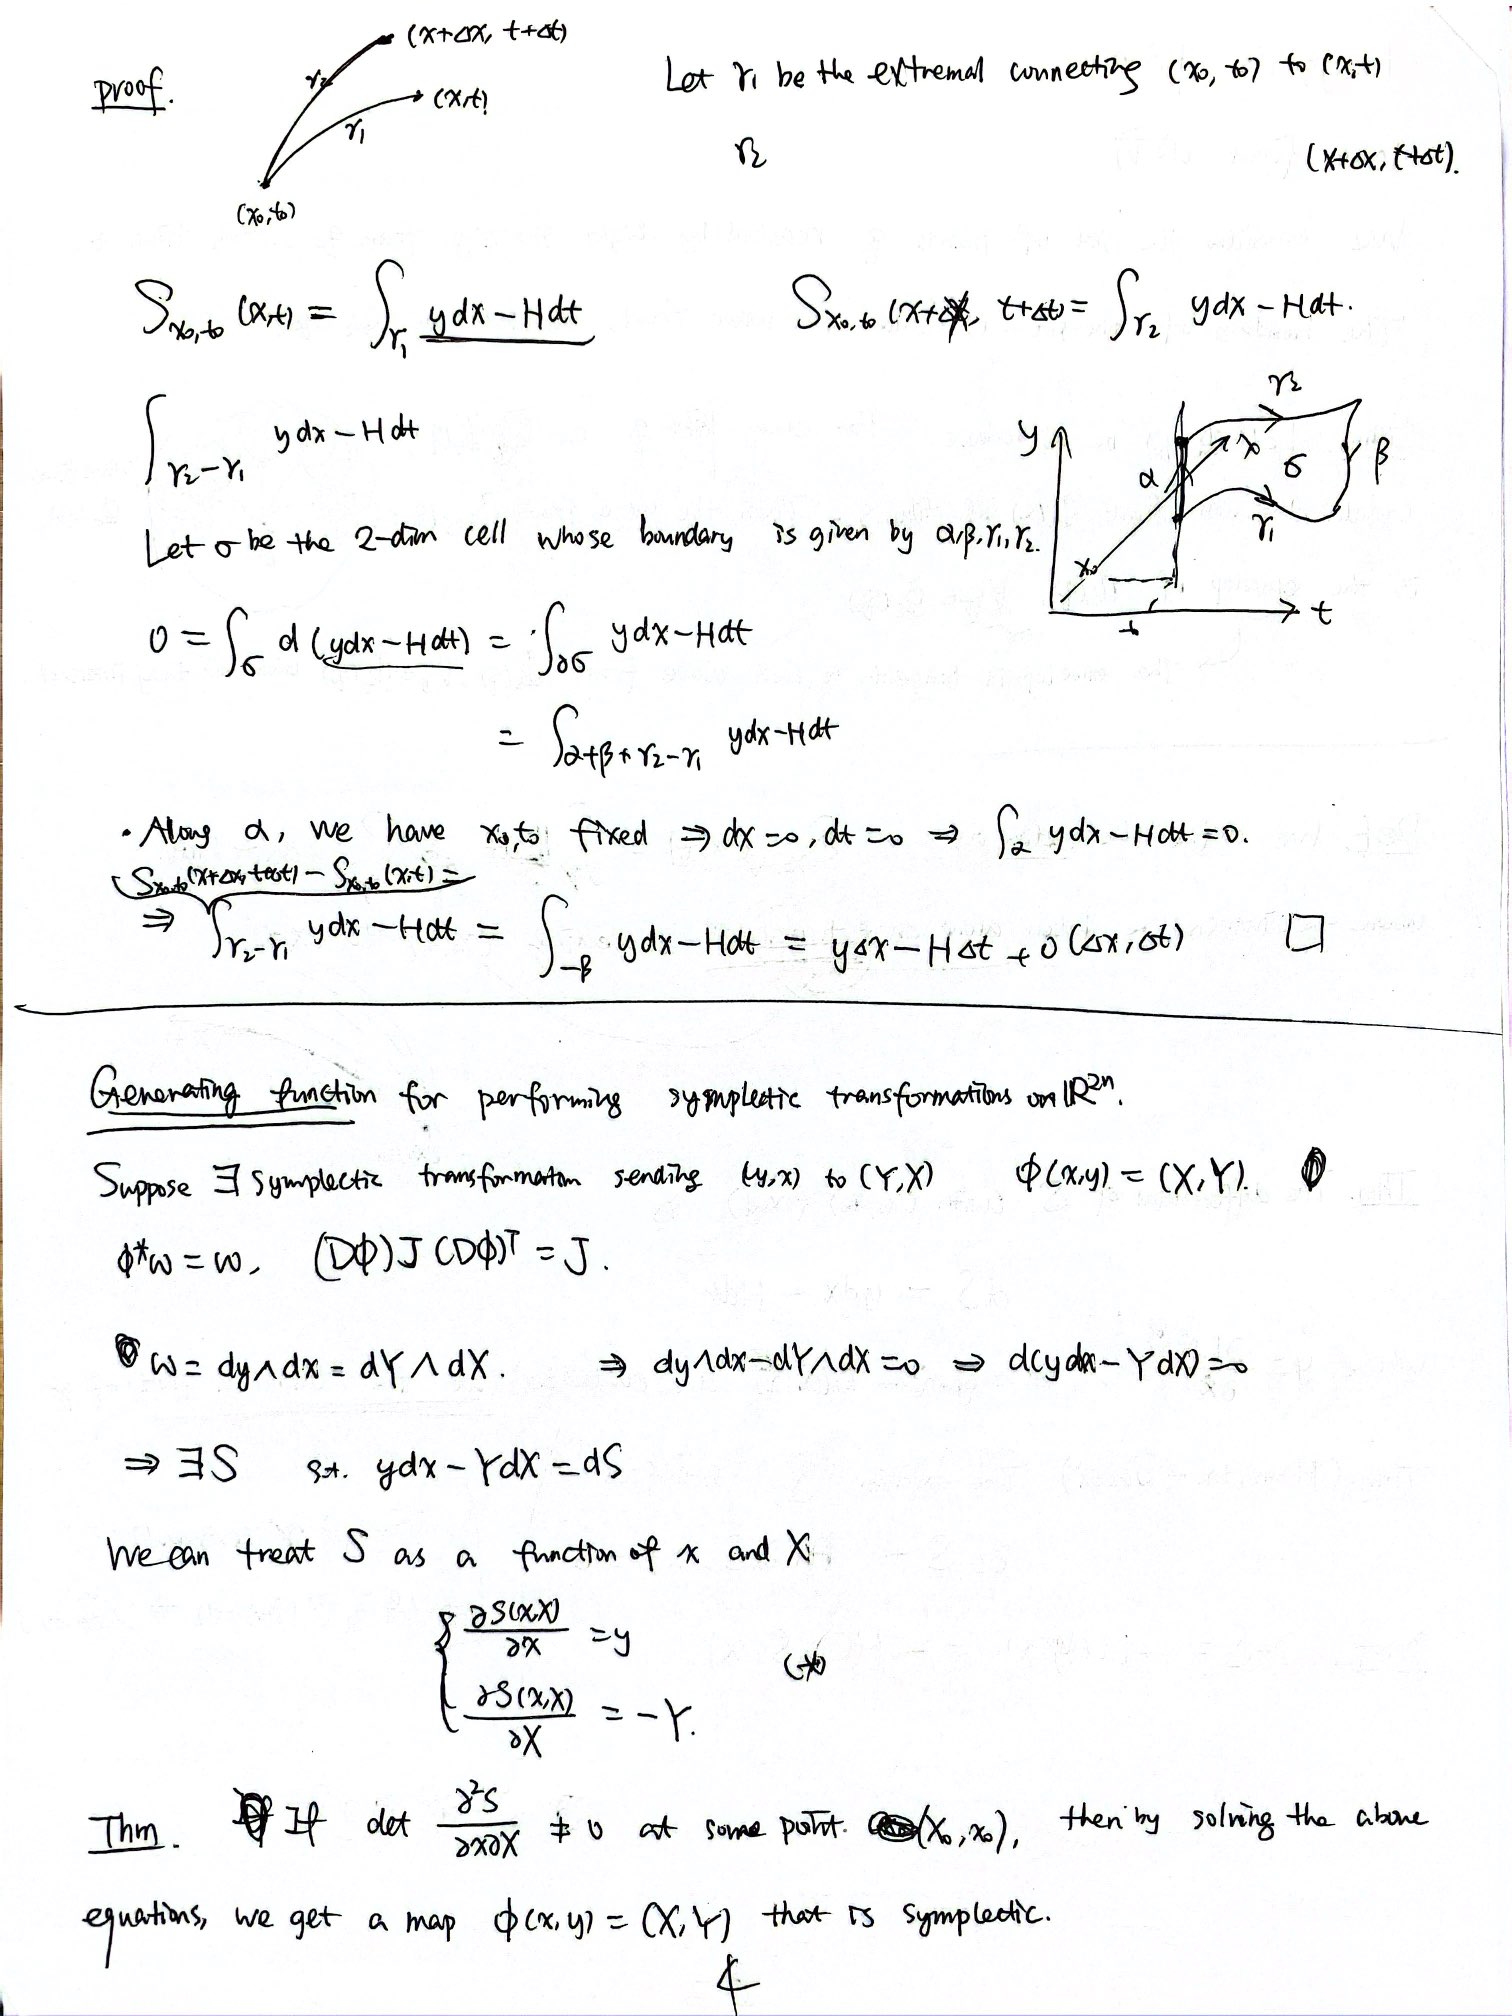 proof.
(x+Δx, t+Δt)
γ₂
(x,t)
γ₁
(x₀,t₀)
Let γ₁ be the extremal connecting (x₀, t₀) to (x,t)
γ₂ (x+Δx, t+Δt).
S_{x₀,t₀} (x,t) = ∫_{γ₁} ydx - Hdt
S_{x₀,t₀} (x+Δx, t+Δt) = ∫_{γ₂} ydx - Hdt.
∫_{γ₂-γ₁} ydx - Hdt
y
α
x
γ₂
σ
β
γ₁
x₀
t₀
t
Let σ be the 2-dim cell whose boundary is given by α,β,γ₁,γ₂.
0 = ∫_σ d(ydx-Hdt) = ∫_{∂σ} ydx-Hdt
= ∫_{α+β+γ₂-γ₁} ydx-Hdt
• Along α, we have x₀,t₀ fixed ⇒ dx=0, dt=0 ⇒ ∫_α ydx-Hdt=0.
S_{x₀,t₀}(x+Δx, t+Δt) - S_{x₀,t₀}(x,t) =
⇒ ∫_{γ₂-γ₁} ydx-Hdt = ∫_{-β} ydx-Hdt = yΔx-HΔt + o(Δx,Δt) □
Generating function for performing symplectic transformations on ℝ²ⁿ.
Suppose ∃ symplectic transformation sending (y,x) to (Y,X) ϕ(x,y) = (X,Y).
ϕ*ω = ω, (Dϕ)J(Dϕ)ᵀ = J.
ω = dy∧dx = dY∧dX. ⇒ dy∧dx-dY∧dX=0 ⇒ d(ydx-YdX)=0
⇒ ∃S s.t. ydx-YdX=dS
We can treat S as a function of x and X
{ ∂S(x,X)/∂x = y
(*)
∂S(x,X)/∂X = -Y.
Thm. If det ∂²S/∂x∂X ≠ 0 at some point (X₀,x₀), then by solving the above
equations, we get a map ϕ(x,y) = (X,Y) that is symplectic.
4